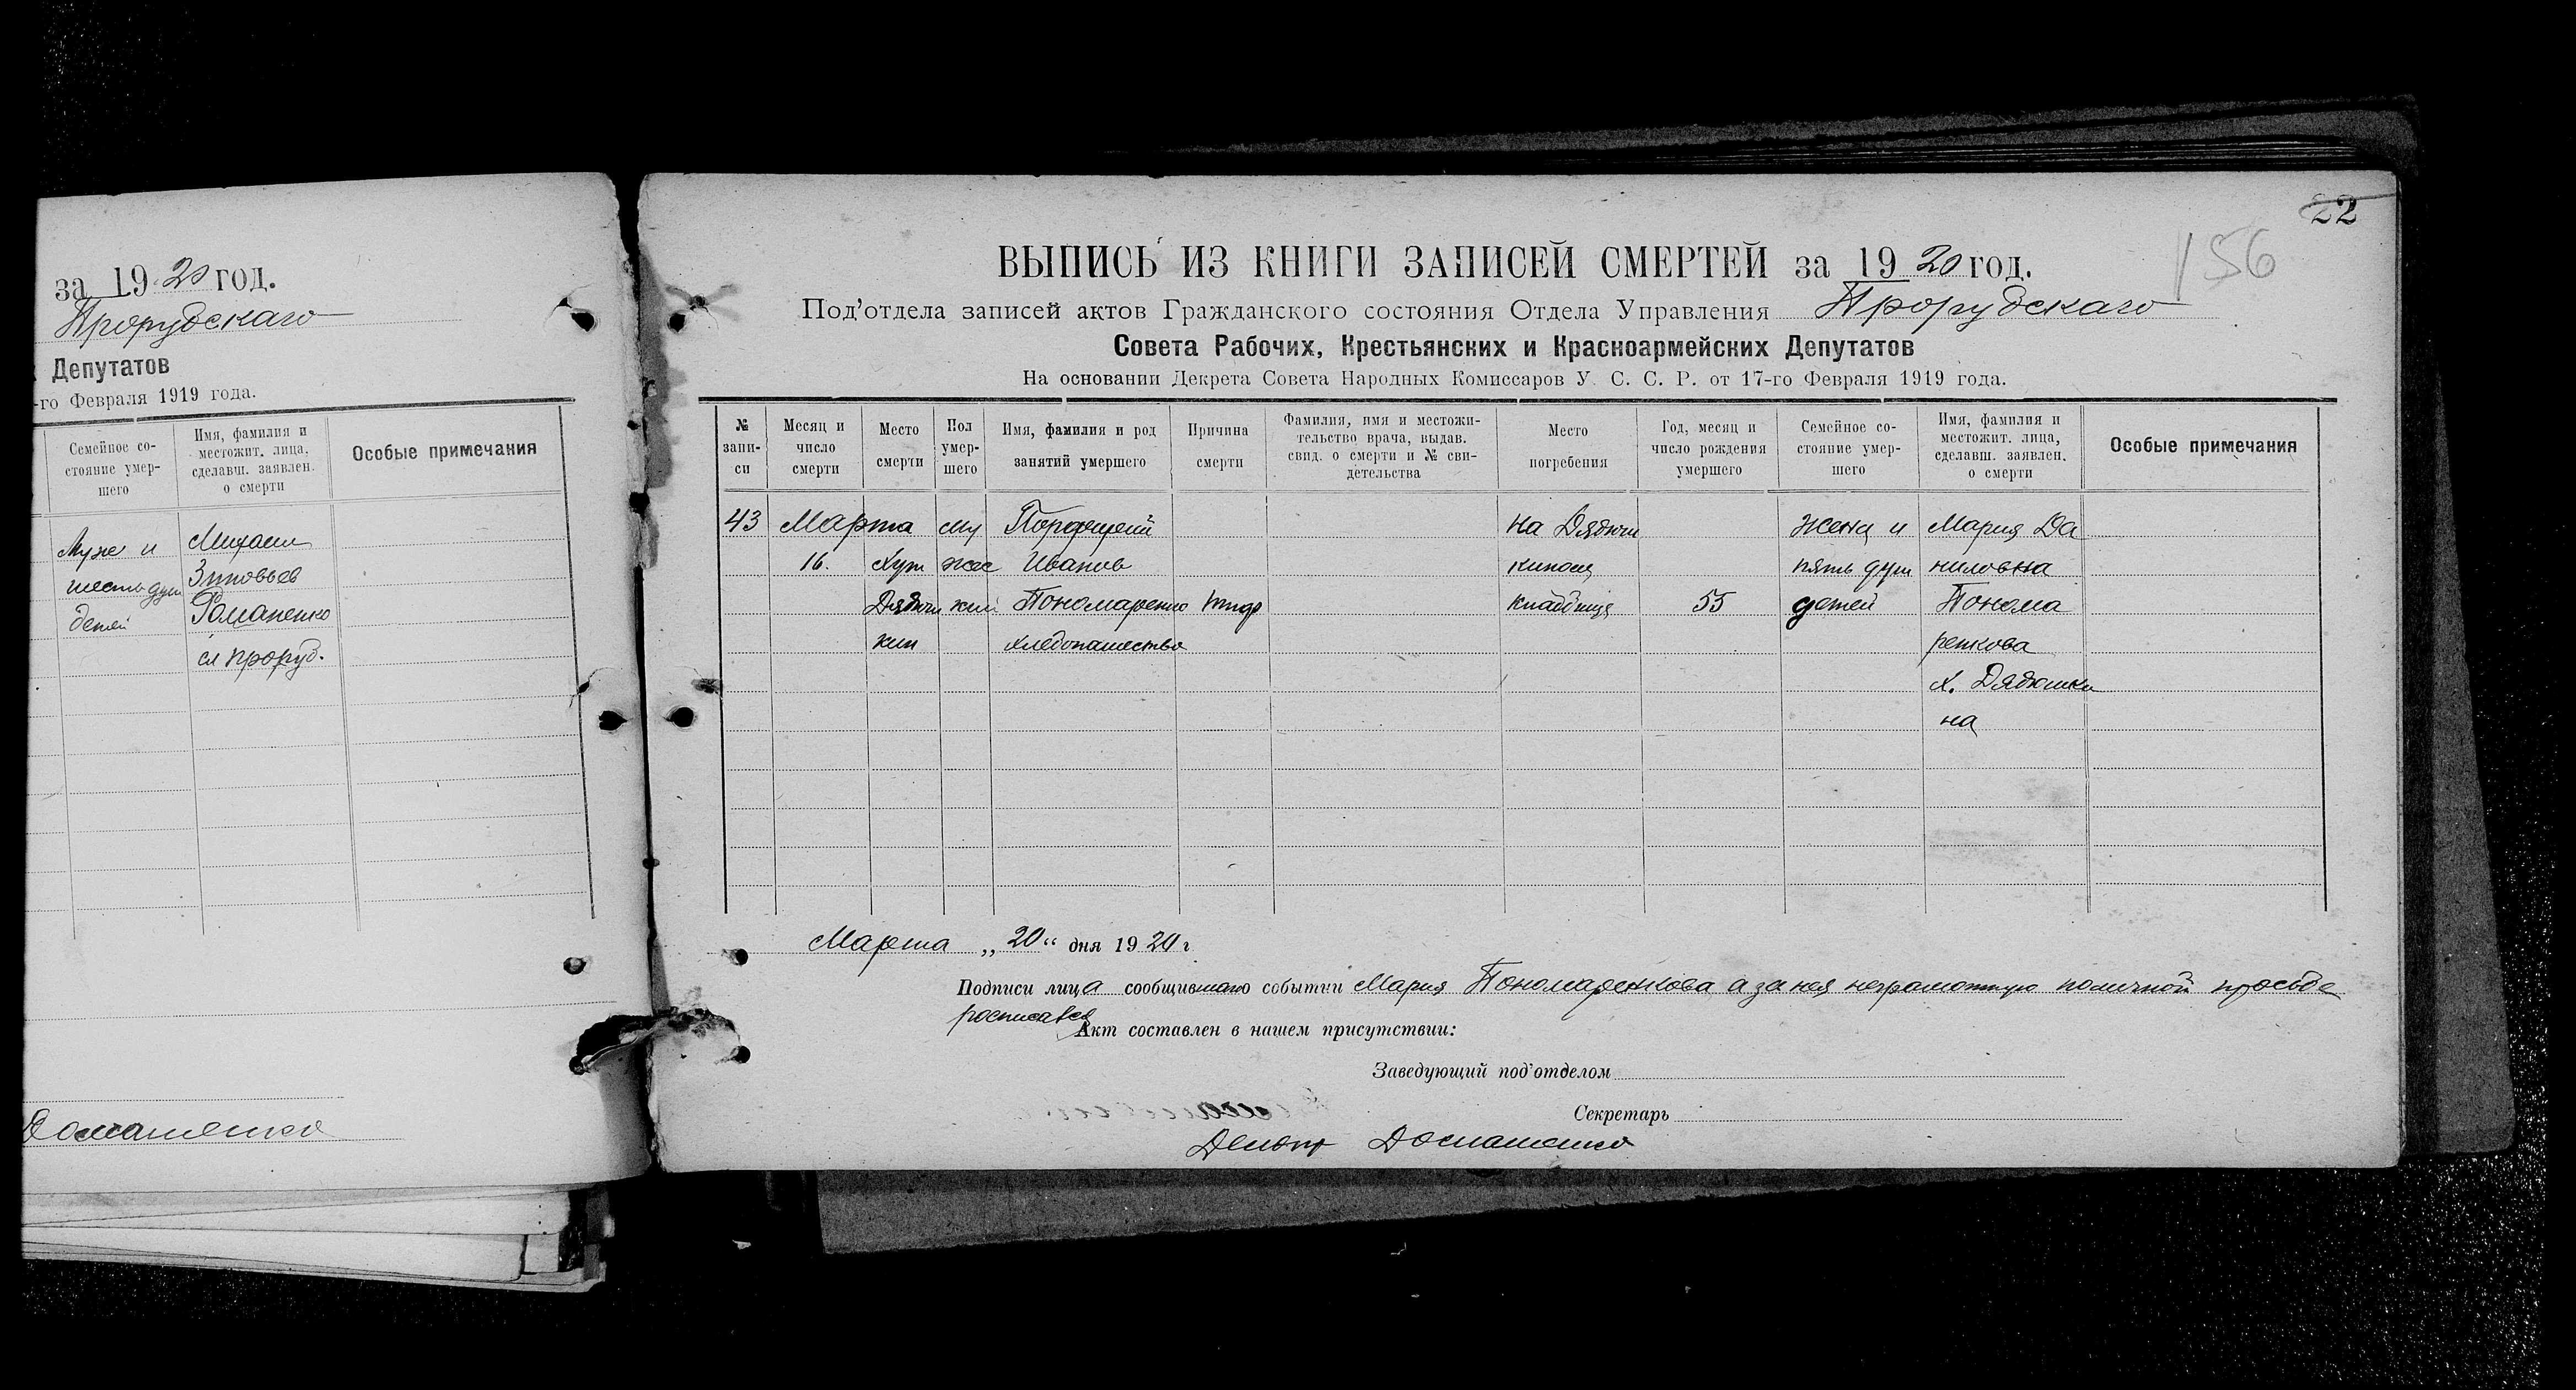 за 1920 год.
Прорубскаго
Депутатов
-го Февраля 1919 года.
Семейное со-
стояние умер-
шего
Имя, фамилия и
местожит. лица,
сделавш. заявлен.
о смерти
Особые примечания
Муж и
шесть душ
детей
Михаил
Зиновьев
Романенко
сл Проруб.
Домашенко
22
156
ВЫПИСЬ ИЗ КНИГИ ЗАПИСЕЙ СМЕРТЕЙ за 1920 год.
Под'отдела записей актов Гражданского состояния Отдела Управления Прорубскаго
Совета Рабочих, Крестьянских и Красноармейских Депутатов
На основании Декрета Совета Народных Комиссаров У. С. С. Р. от 17-го Февраля 1919 года.
№
запи-
си
Месяц и
число
смерти
Место
смерти
Пол
умер-
шего
Имя, фамилия и род
занятий умершего
Причина
смерти
Фамилия, имя и местожи-
тельство врача, выдав.
свид. о смерти и № сви-
детельства
Место
погребения
Год, месяц и
число рождения
умершего
Семейное со-
стояние умер-
шего
Имя, фамилия и
местожит. лица,
сделавш. заявлен.
о смерти
Особые примечания
43
Марта
16.
Хут
Дядюш
кин
му
жес
кий
Порфирий
Иванов
Пономаренко
хлебопашество
тиф
на Дядюш
кином
кладбище
55
жена и
пять душ
детей
Мария Да
ниловна
Понома
ренкова
х. Дядюшки
на
Марта „20“ дня 1920 г
Подписи лица сообщившаго событии Мария Пономаренкова а за нея неграмотную по личной просьбе
росписался
Акт составлен в нашем присутствии:
Заведующий под'отделом
Секретарь
Домашенко